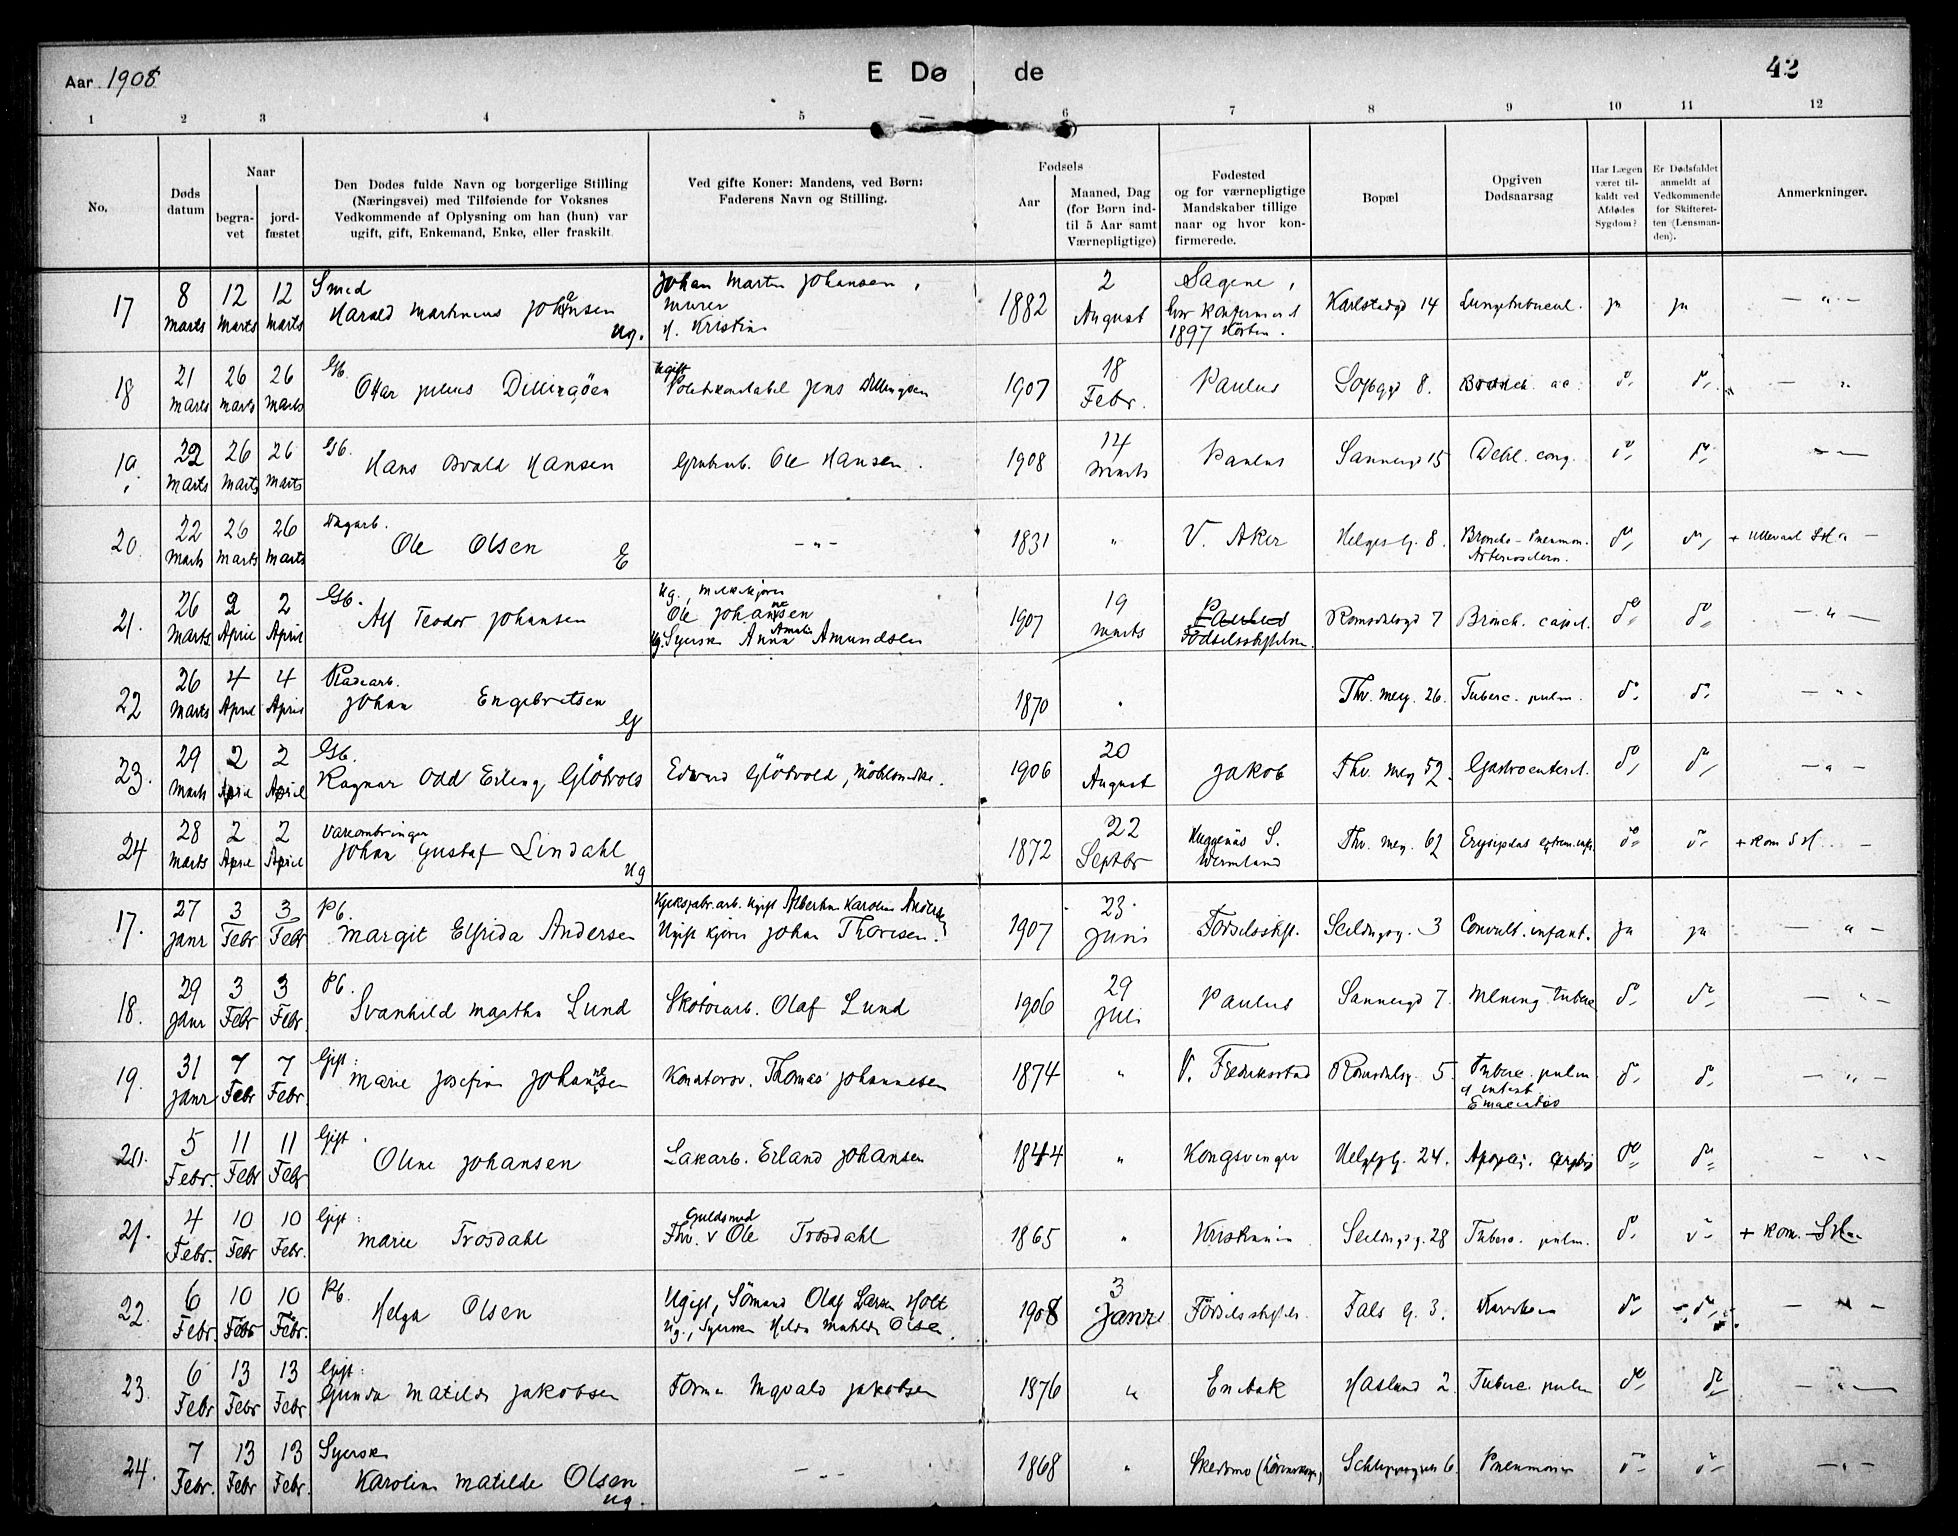 Aar 1908
E Dø de
42
1 2 3 4 5 6 7 8 9 10 11 12
No.
Døds
datum
Naar
begra-
vet
jord-
fæstet
Den Dødes fulde Navn og borgerlige Stilling
(Næringsvei) med Tilføiende for Voksnes
Vedkommende af Oplysning om han (hun) var
ugift, gift, Enkemand, Enke, eller fraskilt.
Ved gifte Koner: Mandens, ved Børn:
Faderens Navn og Stilling.
Fødsels
Aar
Maaned, Dag
(for Børn ind-
til 5 Aar samt
Værnepligtige)
Fødested
og for værnepligtige
Mandskaber tillige
naar og hvor kon-
firmerede.
Bopæl
Opgiven
Dødsaarsag
Har Lægen
været til-
kaldt ved
Afdødes
Sygdom?
Er Dødsfaldet
anmeldt af
Vedkommende
for Skifteret-
ten (Lensman-
den).
Anmerkninger.
17
8 Marts 12 Marts 12 Marts
Smed
Harald Martinius Johansen
ug.
Johan Martin Johansen,
Murer
H. Kristin
1882
2 August
Sagene,
konfirmeret
1897 Horten.
Karlstadgd 14
Lungetubercul.
ja ja — " —
18
21 Marts 26 Marts 26 Marts
Gb.
Ottar Julius Dillingøen
Ugift
Politikonstabel Jens Dillingøen
1907
18 Febr.
Paulus
Sofbgd 8.
Bronch. ac.
do do — "
19
22 Marts 26 Marts 26 Marts
Gb.
Hans Osvald Hansen
Grubarb. Ole Hansen.
1908
14 Marts
Paulus
Sannergd 15
Debil. cong.
do do — " —
20.
22 Marts 26 Marts 26 Marts
Dagarb.
Ole Olsen E
— " —
1831
"
V. Aker
Helgesg. 8.
Broncho-Pneumon.
Arteriosclero.
do do + Ullevaal SH " —
21.
26 Marts 2 April 2 April
Gb.
Alf Teodor Johansen
Ug., Melkekjører
Ole Johannesen
Ug. Syersk Anna Amalie Amundsen
1907
19 Marts
Paulus
Fødselsstiftelsen.
Romsdalsgd 7
Bronch. capil.
do do — " —
22
26 Marts 4 April 4 April
Pladearb.
Johan Engebretsen
G
1870
"
Thv. mey. 26.
Tuberc. pulm.
do do — " —
23.
29 Marts 2 April 2 April
Gb.
Ragnar Odd Erling Glötvold
Edward Glötvold, Möbelsnedke.
1906
20 August
Jakob
Thv. mey 52.
Gastroenterit.
do do — " —
24
28 Marts 2 April 2 April
Vareombringer
Johan Gustaf Lindahl
ug
1872
22 Septbr
Huggenäs S.
Wermland
Thv. mey. 62
Erysipelas
do do + Kom SH —
17.
27 Janr 3 Febr 3 Febr
Pb.
Margit Elfrida Andersen
Ugift Albertine Karoline Andersen
Ugift kjører Johan Thoresen.
1907
23. Juni
Födselsstift.
Seildugsg. 3
Convuls. infant.
ja ja — " —
18.
29 Janr 3 Febr 3 Febr.
Pb.
Svanhild Martha Lund
Skotøiarb. Olaf Lund
1906
29 Juli
Paulus
Sannergd 7.
Mening. tuberc
do do — " —
19.
31 Janr 7 Febr 7 Febr.
Gift:
Marie Josefine Johannesen
Kontorsv. Thomas Johannesen
1874
"
V. Fredriksstad
Romsdalsg. 5.
Tuberc. pulm
et intest.
Emaciatio
do do — " —
20.
5 Febr. 11 Febr 11 Febr
Gift.
Oline Johansen
Lakarb. Erland Johansen
1844
"
Kongsvinger
Helgesg. 24.
Apoplexi.
do do — " —
21.
4 Febr. 10 Febr 10 Febr.
Gift:
Marie Trosdahl
Guldsmed
Thv. v Ole Trosdahl
1865
"
Kristiania
Seildugsg. 28
Tuberc. pulm.
do do + Kom. SH
22.
6 Febr. 10 Febr 10 Febr.
Pb.
Helga Olsen
Ugift, Sömand Olaf Larsen Holt
Ug., Syersk Hilda Matilde Olsen.
1908
3 Janr
Födselsstiftels.
Fals g. 3.
do do — " —
23.
6 Febr 13 Febr 13 Febr.
Gift:
Gunda Matilde Jakobsen
Former Ingvald Jakobsen
1876
"
Enebak
Haslund 2
Tuberc. pulm
do do — " —
24.
7 Febr. 13 Febr 13 Febr.
Syersk
Karoline Matilde Olsen
ug.
— " —
1868
"
Skedsmo
6.
Pneumoni
do do — " —